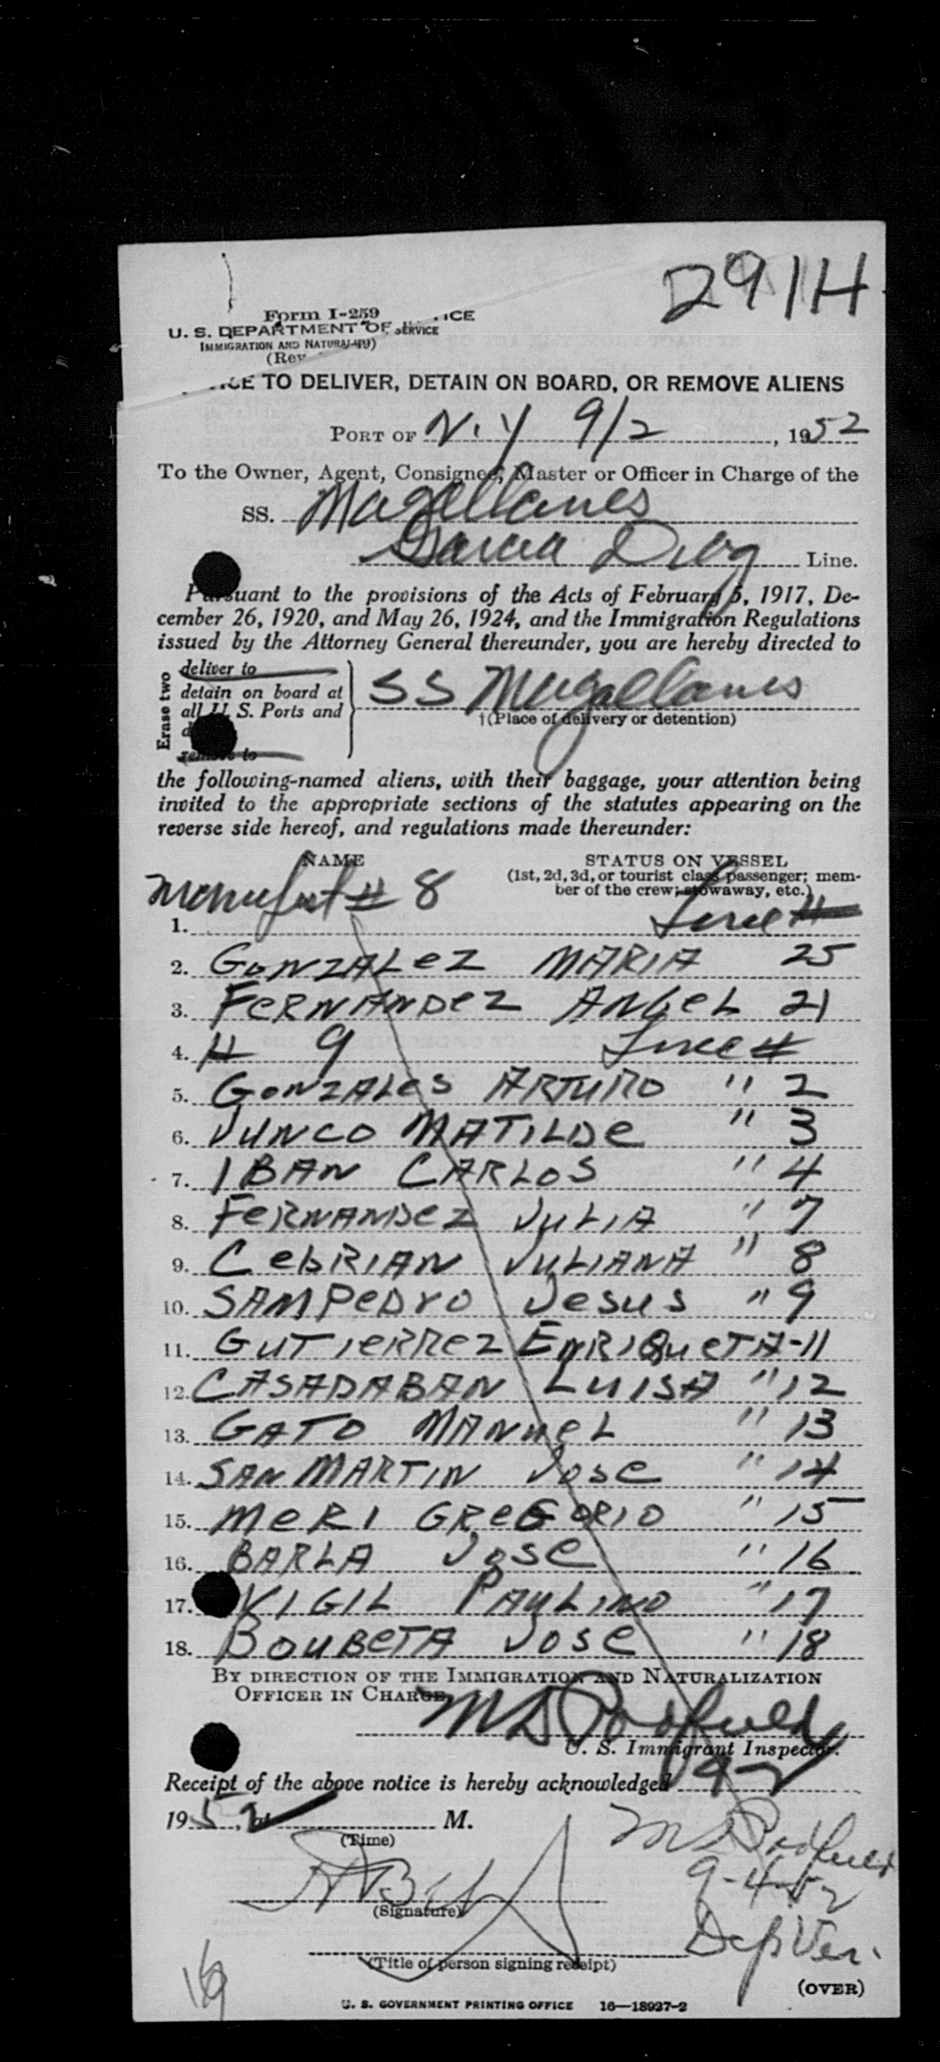 291H
Form I-259 ICE
U. S. DEPARTMENT OF SERVICE
IMMIGRATION AND
(Rev
TO DELIVER, DETAIN ON BOARD, OR REMOVE ALIENS
PORT OF N.Y 9/2, 1952
To the Owner, Agent, Consignee, Master or Officer in Charge of the
SS. Magallanes
Garcia Diaz Line.
Pursuant to the provisions of the Acts of February 5, 1917, De-
cember 26, 1920, and May 26, 1924, and the Immigration Regulations
issued by the Attorney General thereunder, you are hereby directed to
Erase two
deliver to
detain on board at
all U. S. Ports and
remove to
SS Magallanes
†(Place of delivery or detention)
the following-named aliens, with their baggage, your attention being
invited to the appropriate sections of the statutes appearing on the
reverse side hereof, and regulations made thereunder:
NAME STATUS ON VESSEL
(1st, 2d, 3d, or tourist class passenger; mem-
ber of the crew; stowaway, etc.)
Manifest # 8
1. Line #
2. GONZALEZ MARIA 25
3. FERNANDEZ ANGEL 21
4. # 9 Line #
5. GONZALES ARTURO " 2
6. JUNCO MATILDE " 3
7. IBAN CARLOS " 4
8. FERNANDEZ JULIA " 7
9. CEBRIAN JULIANA " 8
10. SAMPEDRO JESUS " 9
11. GUTIERREZ ENRIQUETA - 11
12. CASADABAN LUISA " 12
13. GATO MANUEL " 13
14. SAN MARTIN JOSE " 14
15. MERI GREGORIO " 15
16. BARLA JOSE " 16
17. VIGIL PAULINO " 17
18. BOUBETA JOSE " 18
BY DIRECTION OF THE IMMIGRATION AND NATURALIZATION
OFFICER IN CHARGE
U. S. Immigrant Inspector.
Receipt of the above notice is hereby acknowledged 9-2
1952, at M.
(Time)
9-4-52
(Signature)
(Title of person signing receipt)
(OVER)
U. S. GOVERNMENT PRINTING OFFICE 16—18927-2